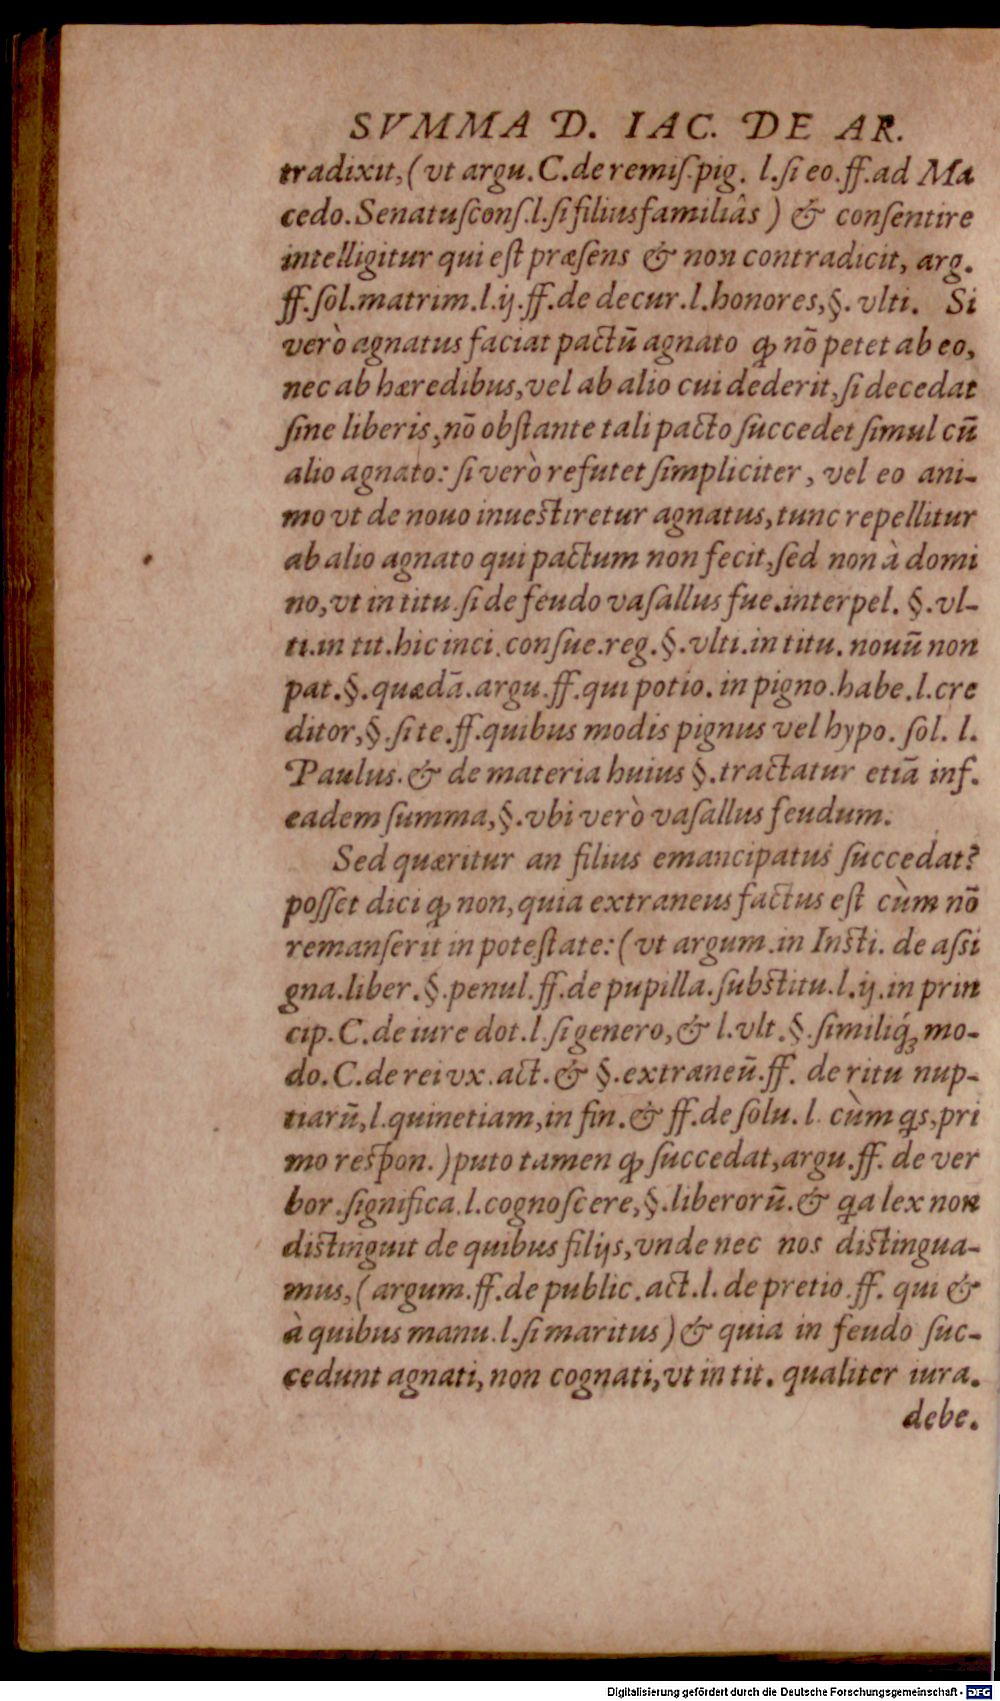 SVMMA D. IAC. DE AR.
tradixit, (vt argu. C. de remiſ. pig. l. ſi eo. ff. ad Ma
cedo. Senatuſconſ. l. ſi filiusfamiliâs) & conſentire
intelligitur qui eſt præſens & non contradicit, arg.
ff. ſol. matrim. l. ij. ff. de decur. l. honores, §. vlti. Si
verò agnatus faciat pactū agnato ꝙ nō petet ab eo,
nec ab hæredibus, vel ab alio cui dederit, ſi decedat
ſine liberis, nō obſtante tali pacto ſuccedet ſimul cū
alio agnato: ſi verò refutet ſimpliciter, vel eo ani-
mo vt de nouo inueſtiretur agnatus, tunc repellitur
ab alio agnato qui pactum non fecit, ſed non à domi
no, vt in titu. ſi de feudo vaſallus fue. interpel. §. vl-
ti. in tit. hic inci. conſue. reg. §. vlti. in titu. nouū non
pat. §. quædā. argu. ff. qui potio. in pigno. habe. l. cre
ditor, §. ſi te. ff. quibus modis pignus vel hypo. ſol. l.
Paulus. & de materia huius §. tractatur etiā inf.
eadem ſumma, §. vbi verò vaſallus feudum.
Sed quæritur an filius emancipatus ſuccedat?
poſſet dici ꝙ non, quia extraneus factus eſt cùm nō
remanſerit in poteſtate: (vt argum. in Inſti. de aſſi
gna. liber. §. penul. ff. de pupilla. ſubſtitu. l. ij. in prin
cip. C. de iure dot. l. ſi genero, & l. vlt. §. ſimiliq́; mo-
do. C. de rei vx. act. & §. extraneū. ff. de ritu nup-
tiarū, l. quinetiam, in fin. & ff. de ſolu. l. cùm ꝗs, pri
mo reſpon. ) puto tamen ꝙ ſuccedat, argu. ff. de ver
bor. ſignifica. l. cognoſcere, §. liberorū. & ꝗa lex non
diſtinguit de quibus filijs, vnde nec nos diſtingua-
mus, (argum. ff. de public. act. l. de pretio. ff. qui &
à quibus manu. l. ſi maritus) & quia in feudo ſuc-
cedunt agnati, non cognati, vt in tit. qualiter iura.
debe.
Digitalisierung gefördert durch die Deutsche Forschungsgemeinschaft - DFG